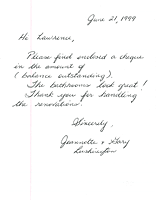 June 21, 1999
Hi Lawrence,
Please find enclosed a cheque
in the amount of
(balance outstanding).
The bathrooms look great!
Thank you for handling
the renovations.
Sincerely,
Jeannette & Gary